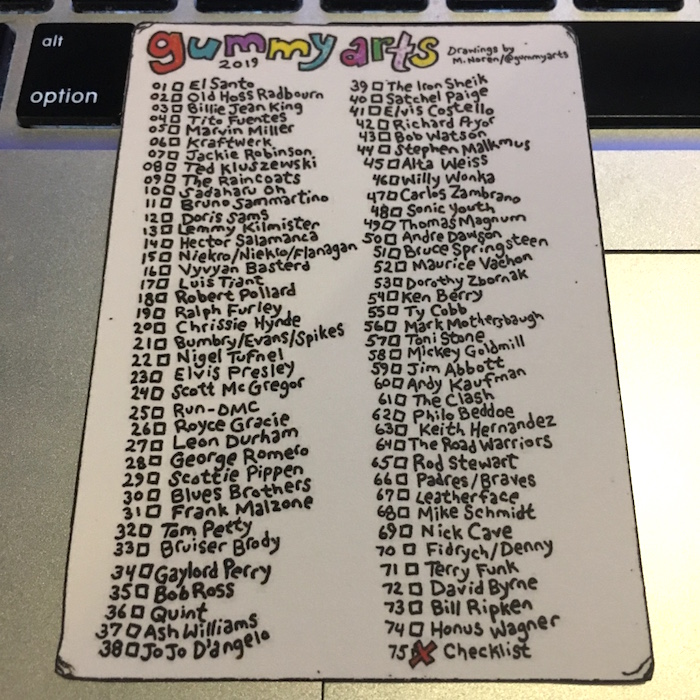 alt
option
gummy arts
2019
Drawings by
M. Noren/@gummyarts
01 El Santo
02 Old Hoss Radbourn
03 Billie Jean King
04 Tito Fuentes
05 Marvin Miller
06 Kraftwerk
07 Jackie Robinson
08 Ted Kluszewski
09 The Raincoats
10 Sadaharu Oh
11 Bruno Sammartino
12 Doris Sams
13 Lemmy Kilmister
14 Hector Salamanca
15 Niekro/Niekro/Flanagan
16 Vyvyan Basterd
17 Luis Tiant
18 Robert Pollard
19 Ralph Furley
20 Chrissie Hynde
21 Bumbry/Evans/Spikes
22 Nigel Tufnel
23 Elvis Presley
24 Scott McGregor
25 Run-DMC
26 Royce Gracie
27 Leon Durham
28 George Romero
29 Scottie Pippen
30 Blues Brothers
31 Frank Malzone
32 Tom Petty
33 Bruiser Brody
34 Gaylord Perry
35 Bob Ross
36 Quint
37 Ash Williams
38 JoJo D'angelo
39 The Iron Sheik
40 Satchel Paige
41 Elvis Costello
42 Richard Pryor
43 Bob Watson
44 Stephen Malkmus
45 Alta Weiss
46 Willy Wonka
47 Carlos Zambrano
48 Sonic Youth
49 Thomas Magnum
50 Andre Dawson
51 Bruce Springsteen
52 Maurice Vachon
53 Dorothy Zbornak
54 Ken Berry
55 Ty Cobb
56 Mark Mothersbaugh
57 Toni Stone
58 Mickey Goldmill
59 Jim Abbott
60 Andy Kaufman
61 The Clash
62 Philo Beddoe
63 Keith Hernandez
64 The Road Warriors
65 Rod Stewart
66 Padres/Braves
67 Leatherface
68 Mike Schmidt
69 Nick Cave
70 Fidrych/Denny
71 Terry Funk
72 David Byrne
73 Bill Ripken
74 Honus Wagner
75 Checklist